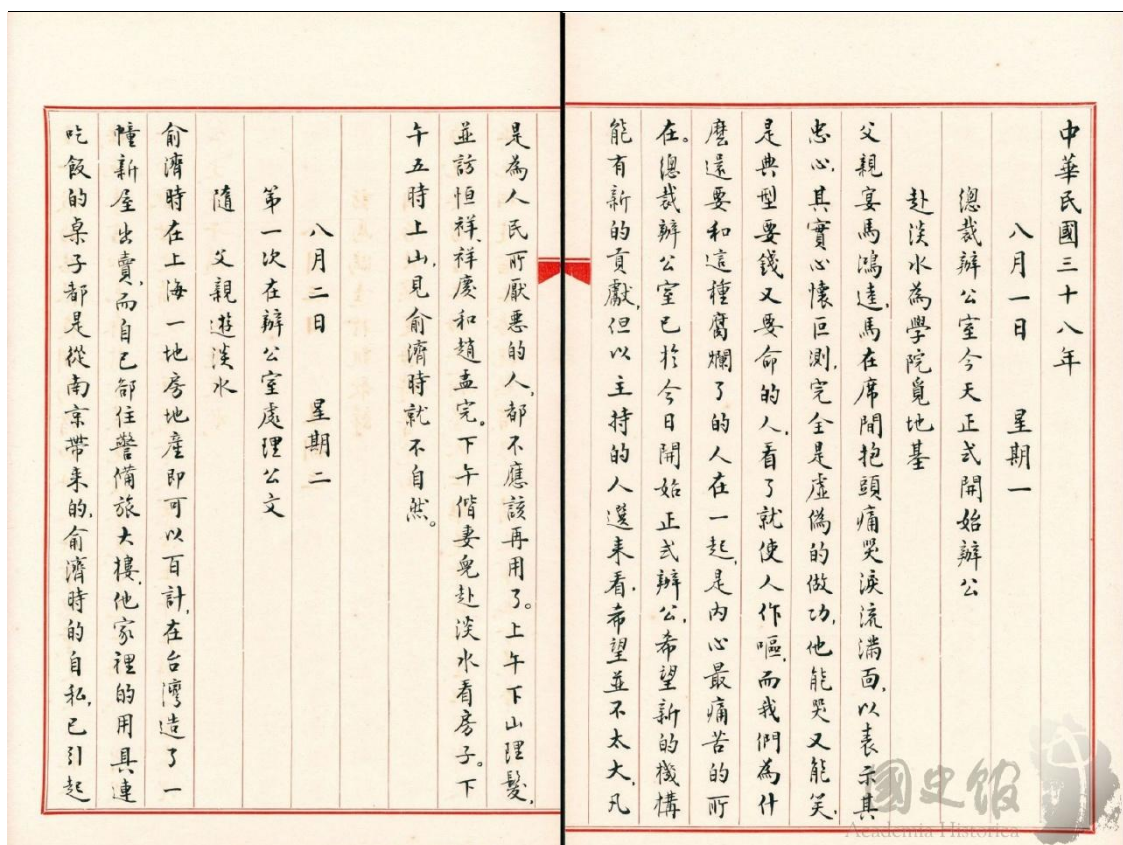 中華民國三十八年
八月一日　星期一
總裁辦公室今天正式開始辦公
赴淡水為學院覓地基
父親宴馬鴻逵，馬在席間抱頭痛哭淚流滿面，以表示其
忠心，其實心懷叵測，完全是虛偽的做功，他能哭又能笑，
是典型要錢又要命的人，看了就使人作嘔，而我們為什
麼還要和這種腐爛了的人在一起，是內心最痛苦的所
在。總裁辦公室已於今日開始正式辦公，希望新的機構
能有新的貢獻，但以主持的人選來看，希望並不太大，凡
是為人民所厭惡的人，都不應該再用了。上午下山理髮，
並訪恒祥、祥慶和趙孟完。下午偕妻兒赴淡水看房子。下
午五時上山，見俞濟時就不自然。
八月二日　星期二
第一次在辦公室處理公文
隨　父親遊淡水
俞濟時在上海一地房地產即可以百計，在台灣造了一
幢新屋出賣，而自己卻住警備旅大樓，他家裡的用具連
吃飯的桌子都是從南京帶來的，俞濟時的自私，已引起
國史館
Academia Historica